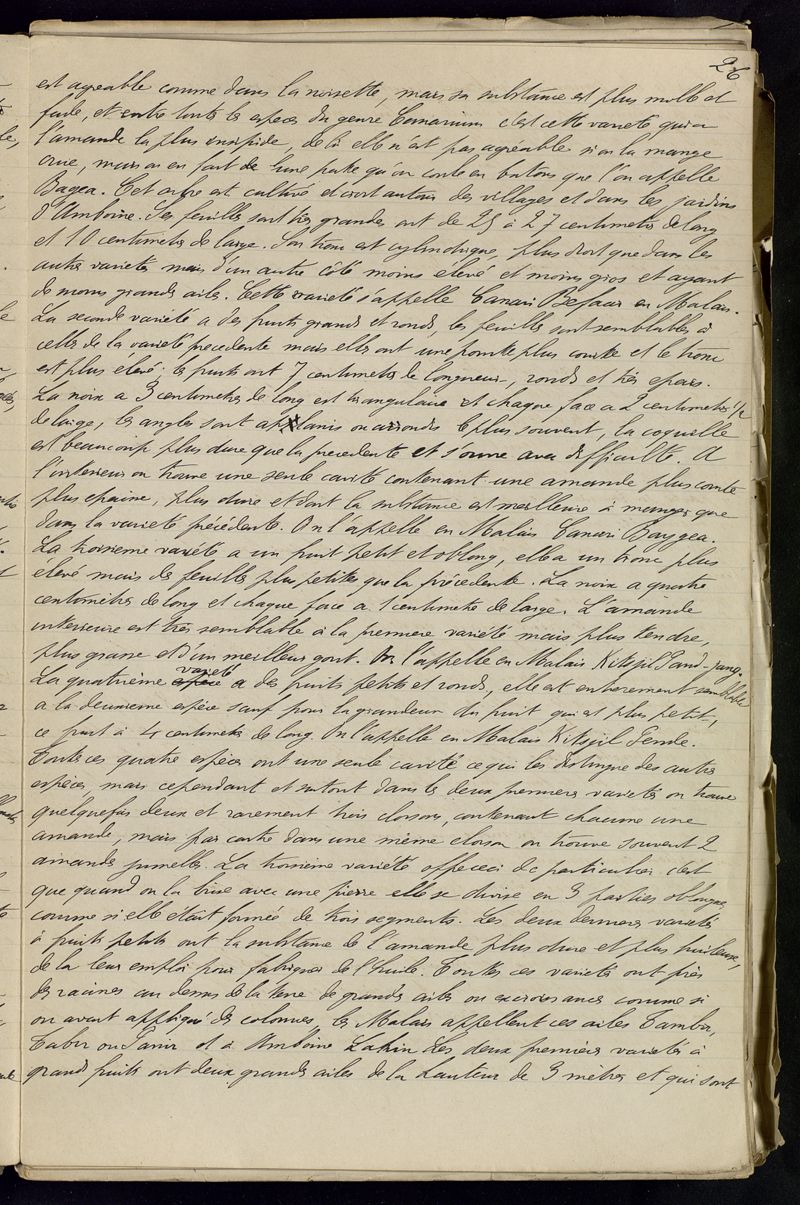 26
est agreable comme dans la noisette, mais sa substance est plus molle et
fade, et entre touts les especes du genre Canarium c'est cette varieté qui a
l'amande la plus insipide, de là elle n'est pas agreable si on la mange
crue, mais on en fait de une pate qu'on coule en batons que l'on appelle
Bagea. Cet arbre est cultivé et croit autour des villages et dans les jardins
d'Amboine. Ses feuilles sont très grandes ont de 25 à 27 centimetres de long
et 10 centimetres de large. Son tronc est cylindrique, plus droit que dans les
autres varietés mais d'un autre côté moins elevé et moins gros et ayant
de moins grandes ailes. Cette varieté s'appelle Canari Besaar en Malais.
La seconde variété a des fruits grands et ronds, les feuilles sont semblables à
celles de la variété precedente mais elles ont une pointe plus courte et le tronc
est plus élevé; les fruits ont 7 centimetres de longueur, ronds et très epais.
La noix a 3 centimetres de long est triangulaire et chaque face a 2 centimetres 1/2
de large, les angles sont applanis ou arrondis le plus souvent, la coquille
est beaucoup plus dure que la precedente et s'ouvre avec difficulté. A
l'interieur on trouve une seule cavité contenant une amande plus courte
plus epaisse, plus dure et dont la substance est meilleure à manger que
dans la varieté précédente. On l'appelle en Malais Canari Baygea.
La troisieme varieté a un fruit petit et oblong, elle a un tronc plus
élevé mais des feuilles plus petites que la précedente. La noix a quatre
centimètres de long et chaque face a 1 centimetre de large. L'amande
interieure est très semblable à la premiere variété mais plus tendre,
plus grasse et d'un meilleur gout. On l'appelle en Malais Kitsjil Pand-jang.
La quatrième espèce varieté a des fruits petits et ronds, elle est entierement semblable
a la deuxieme espèce sauf pour la grandeur du fruit qui est plus petit,
ce fruit à 4 centimetres de long. On l'appelle en Malais Kitsjil Pende.
Toutes ces quatre espèces ont une seule cavité ce qui les distingue des autres
espèces, mais cependant et surtout dans les deux premieres varietés on trouve
quelquefois deux et rarement trois cloisons, contenant chacune une
amande, mais par contre dans une même cloison on trouve souvent 2
amandes jumelles. La troisieme variété offre ceci de particulier c'est
que quand on la brise avec une pierre elle se divise en 3 parties oblongues
comme si elle était formée de trois segments. Les deux dernieres varietés
à fruits petits ont la substance de l'amande plus dure et plus huileuse,
de la leur emploi pour fabriquer de l'huile. Toutes ces varietés ont près
des racines au dessus de la terre de grandes ailes ou excroissances comme si
on avait appliqué des colonnes, les Malais appellent ces ailes Tambir,
Tabir ou Banir et à Amboine Lahin. Les deux premieres varietés à
grands fruits ont deux grandes ailes de la hauteur de 3 mètres et qui sont